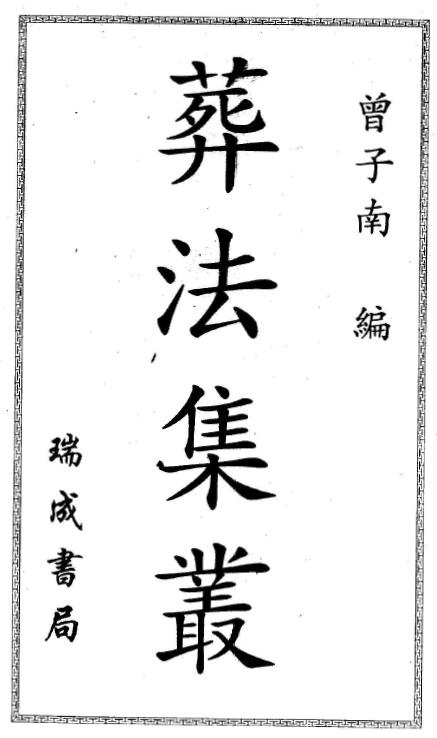 曾子南 編
葬法集叢
瑞成書局